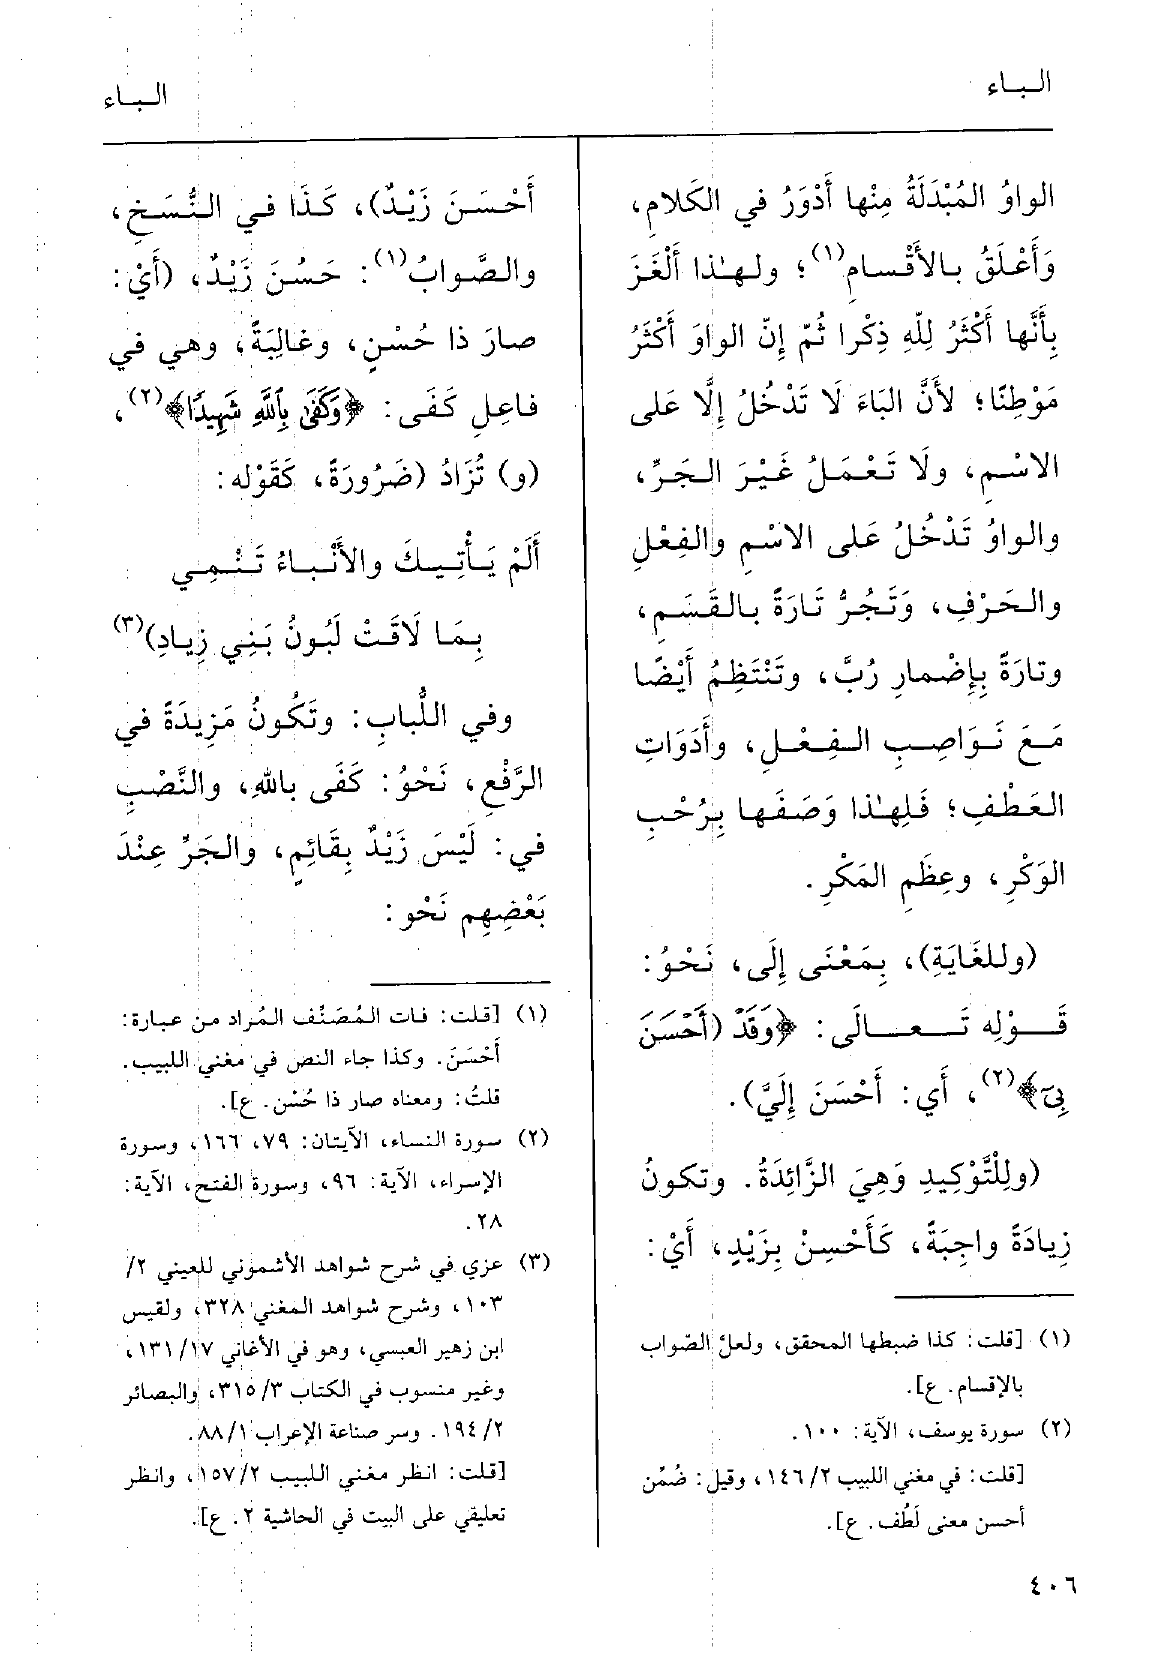 البـاء
البـاء
الواوُ المُبْدَلَةُ مِنْها أَدْوَرُ في الكَلامِ،
وَأَعْلَقُ بالأَقْسامِ(١)؛ ولهٰذا أَلْغَزَ
بِأَنَّها أَكْثَرُ لِلّهِ ذِكْرا ثُمّ إِنّ الواوَ أَكْثَرُ
مَوْطِنًا؛ لأَنَّ البَاءَ لَا تَدْخُلُ إِلَّا عَلى
الاسْمِ، ولَا تَعْمَلُ غَيْرَ الجَرِّ،
والواوُ تَدْخُلُ عَلى الاسْمِ والفِعْلِ
والحَرْفِ، وَتَجُرُّ تَارَةً بالقَسَمِ،
وتارَةً بِإِضْمارِ رُبَّ، وتَنْتَظِمُ أَيْضًا
مَعَ نَوَاصِبِ الفِعْلِ، وأَدَوَاتِ
العَطْفِ؛ فَلِهٰذا وَصَفَها بِرُحْبِ
الوَكْرِ، وعِظَمِ المَكْرِ.
(وللغَايَةِ)، بِمَعْنَى إِلَى، نَحْوُ:
قَوْلِه تَعالَى: ﴿وَقَدْ (أَحْسَنَ
بِىٓ﴾(٢)، أَي: أَحْسَنَ إِلَيَّ).
(ولِلْتَّوْكِيدِ وَهِيَ الزَّائِدَةُ. وتكونُ
زِيادَةً واجِبَةً، كَأَحْسِنْ بِزَيْدٍ، أَيْ:
(١) [قلت: كذا ضبطها المحقق، ولعلّ الصّواب
بالإقسام. ع].
(٢) سورة يوسف، الآية: ١٠٠.
[قلت: في مغني اللبيب ١٤٦/٢، وقيل: ضُمِّن
أحسن معنى لَطُف. ع].
أَحْسَنَ زَيْدٌ)، كَذَا في النُّسَخِ،
والصَّوابُ(١): حَسُنَ زَيْدٌ، (أَيْ:
صارَ ذا حُسْنٍ، وغالِبَةً، وهي في
فاعِلِ كَفَى: ﴿وَكَفَىٰ بِٱللَّهِ شَهِيدًا﴾(٢)،
(و) تُزَادُ (ضَرُورَةً، كَقَوْله:
أَلَمْ يَأْتِيكَ والأَنْباءُ تَنْمِي
بِمَا لَاقَتْ لَبُونُ بَنِي زِيادِ)(٣)
وفي اللُّبابِ: وتَكُونُ مَزِيدَةً في
الرَّفْعِ، نَحْوُ: كَفَى باللهِ، والنَّصْبِ
في: لَيْسَ زَيْدٌ بِقَائِمٍ، والجَرِّ عِنْدَ
بَعْضِهِم نَحْو:
(١) [قلت: فات المُصَنِّف المُراد من عبارة:
أَحْسَنَ. وكذا جاء النص في مغني اللبيب.
قلتُ: ومعناه صار ذا حُسْن. ع].
(٢) سورة النساء، الآيتان: ٧٩، ١٦٦، وسورة
الإسراء، الآية: ٩٦، وسورة الفتح، الآية:
٢٨.
(٣) عزي في شرح شواهد الأشموني للعيني ٢/
١٠٣، وشرح شواهد المغني ٣٢٨، ولقيس
ابن زهير العبسي، وهو في الأغاني ١٣١/١٧،
وغير منسوب في الكتاب ٣١٥/٣، والبصائر
١٩٤/٢. وسر صناعة الإعراب ٨٨/١.
[قلت: انظر مغني اللبيب ١٥٧/٢، وانظر
تعليقي على البيت في الحاشية ٢. ع].
٤٠٦